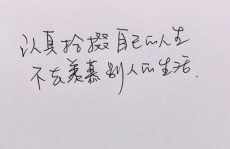 认真拾掇自己的人生
不去羡慕别人的生活.